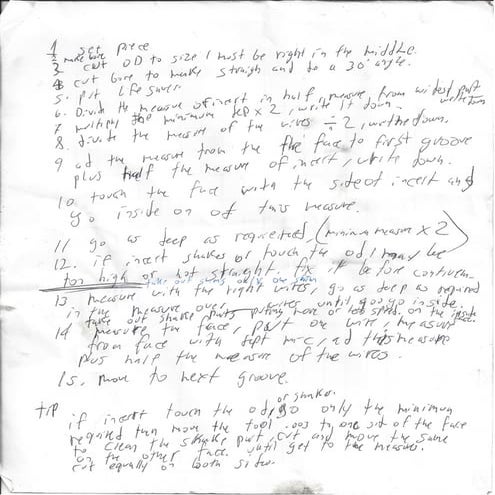 1 set piece
2 make bore
3 cut OD to size I must be right in the middle.
4 cut bore to make straigh and do a 30° angle.
5. put Life saver.
6. Divide the measure of incert in half, measure from widest part
7 multiply the minimum dep x 2, write it down. write down
8. divide the measure of the wires ÷ 2, write down.
9 ad the measure from the face to first groove
plus half the measure of incert, write down.
10 touch the face with the side of incert and
go inside on od this measure.
11 go as deep as required, (minimum measur x 2)
12. if incert shakes or touch the od, I may be
too high or not straight. fix it before continue
take out only one
13 measure with the right wires, go as deep as required
in the measure over wires until go go inside.
take out shake parts putting more or less speed. on the inside
14 measure the face, put one wire, measure
from face with dept mic, ad this measure
plus half the measure of the wires.
15. move to next groove.
or shake.
tip if incert touch the od, go only the minimum
required then move the tool .005 to one sid of the face
to clean the shake part, cut and move the same
on the other face. until get to the measure.
cut equally on both sides.